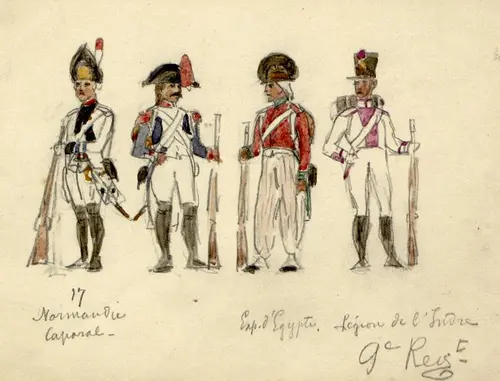 17
Normandie
Caporal-
Exp. d'Egypte.
Légion de l'Indre
9e Regt